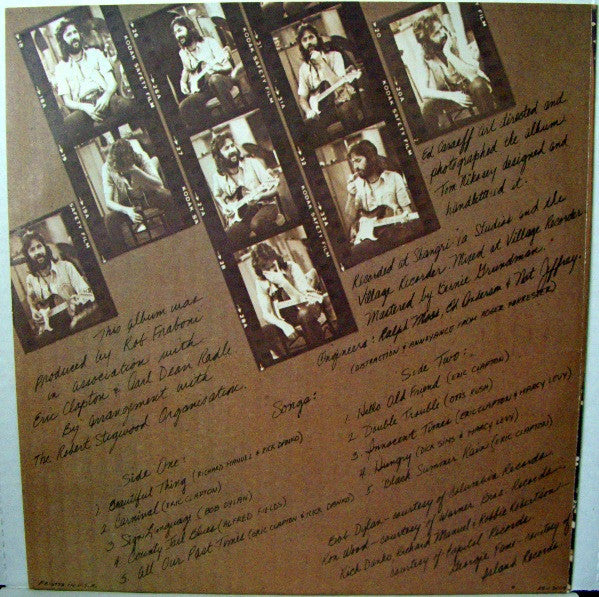 KODAK SAFETY FILM
Ed Caraeff art directed and
photographed the album
Tom Nikosey designed and
handlettered it.
Recorded at Shangri-la Studios and the
Village Recorder. Mixed at Village Recorder
Mastered by Bernie Grundman.
Engineers: Ralph Moss, Ed Anderson & Nat Jeffrey.
(DISTRACTION & ANNOYANCE FROM ROGER FORRESTER)
This album was
Produced by Rob Fraboni
in association with
Eric Clapton & Carl Dean Radle.
By arrangement with
The Robert Stigwood Organisation.
Songs:
Side One:
1. Beautiful Thing (RICHARD MANUEL & RICK DANKO)
2. Carnival (ERIC CLAPTON)
3. Sign Language (BOB DYLAN)
4. County Jail Blues (ALFRED FIELDS)
5. All Our Past Times (ERIC CLAPTON & RICK DANKO)
Side Two:
1. Hello Old Friend (ERIC CLAPTON)
2. Double Trouble (OTIS RUSH)
3. Innocent Times (ERIC CLAPTON & MARCY LEVY)
4. Hungry (DICK SIMS & MARCY LEVY)
5. Black Summer Rain (ERIC CLAPTON)
Bob Dylan - courtesy of Columbia Records
Ron Wood - courtesy of Warner Bros. Records
Rick Danko, Richard Manuel & Robbie Robertson -
courtesy of Capitol Records
Georgie Fame - courtesy of
Island Records
PRINTED IN U.S.A.